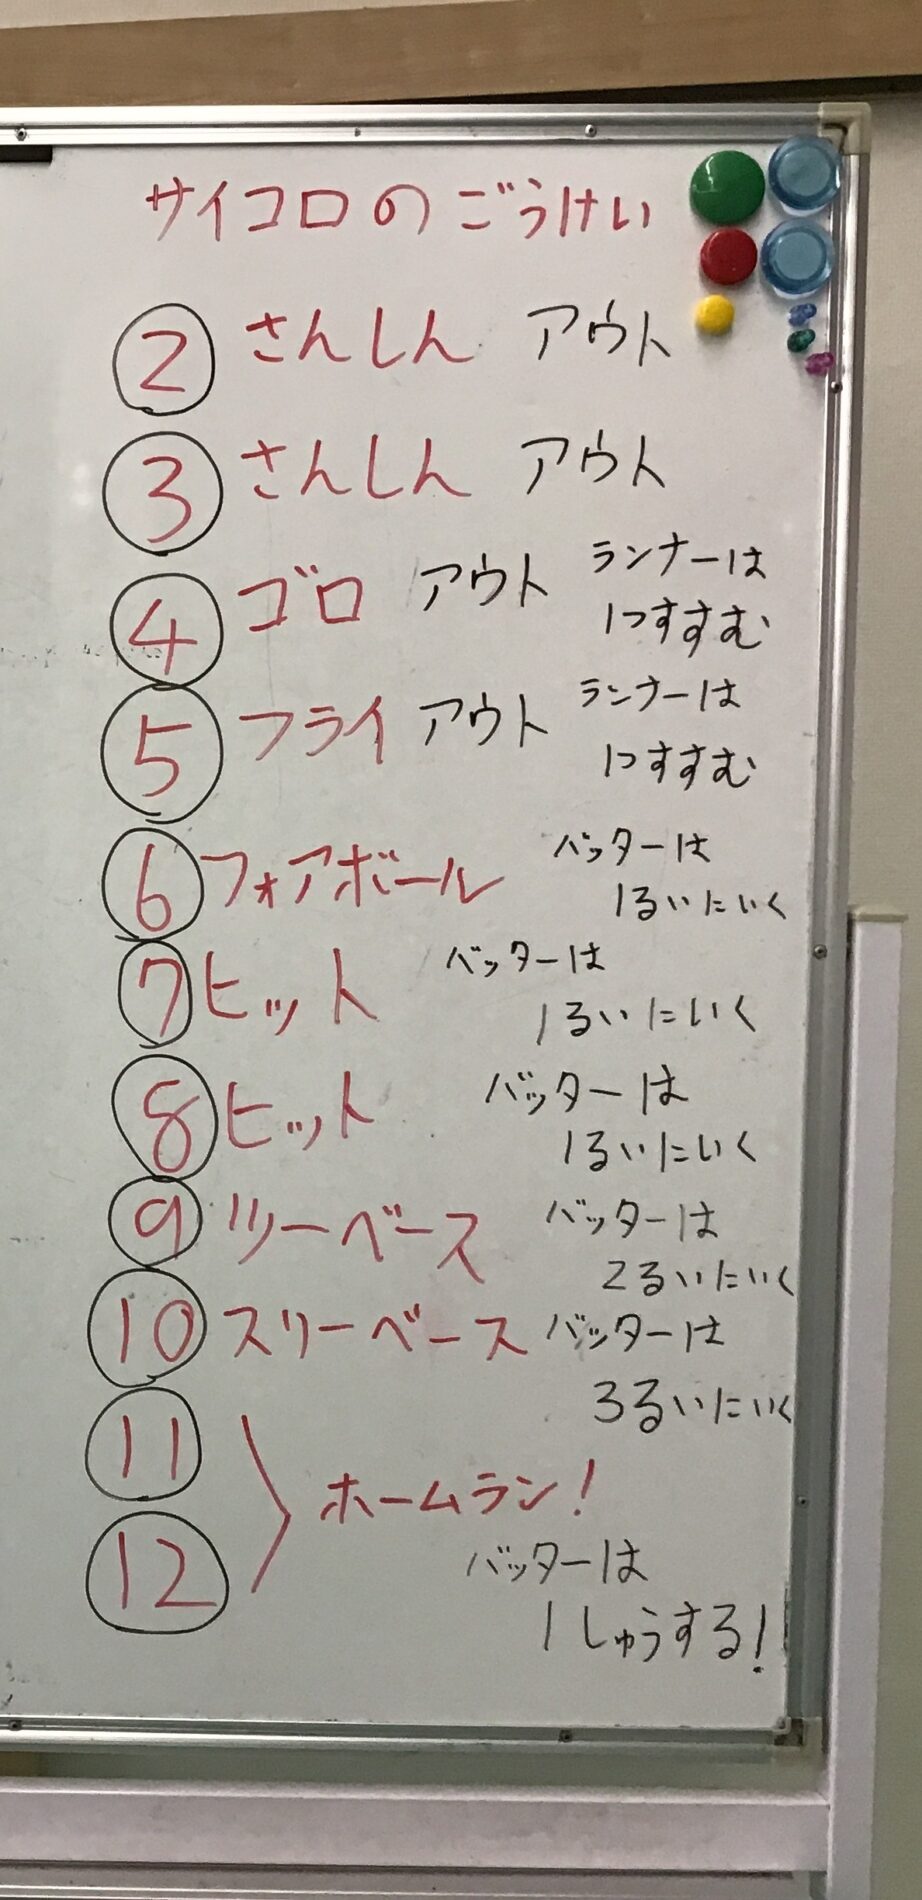 サイコロのごうけい
② さんしん アウト
③ さんしん アウト
④ ゴロ アウト ランナーは
1つすすむ
⑤ フライ アウト ランナーは
1つすすむ
⑥ フォアボール バッターは
1るいにいく
⑦ ヒット バッターは
1るいにいく
⑧ ヒット バッターは
1るいにいく
⑨ ツーベース バッターは
2るいにいく
⑩ スリーベース バッターは
3るいにいく
⑪
ホームラン!
⑫
バッターは
1しゅうする!